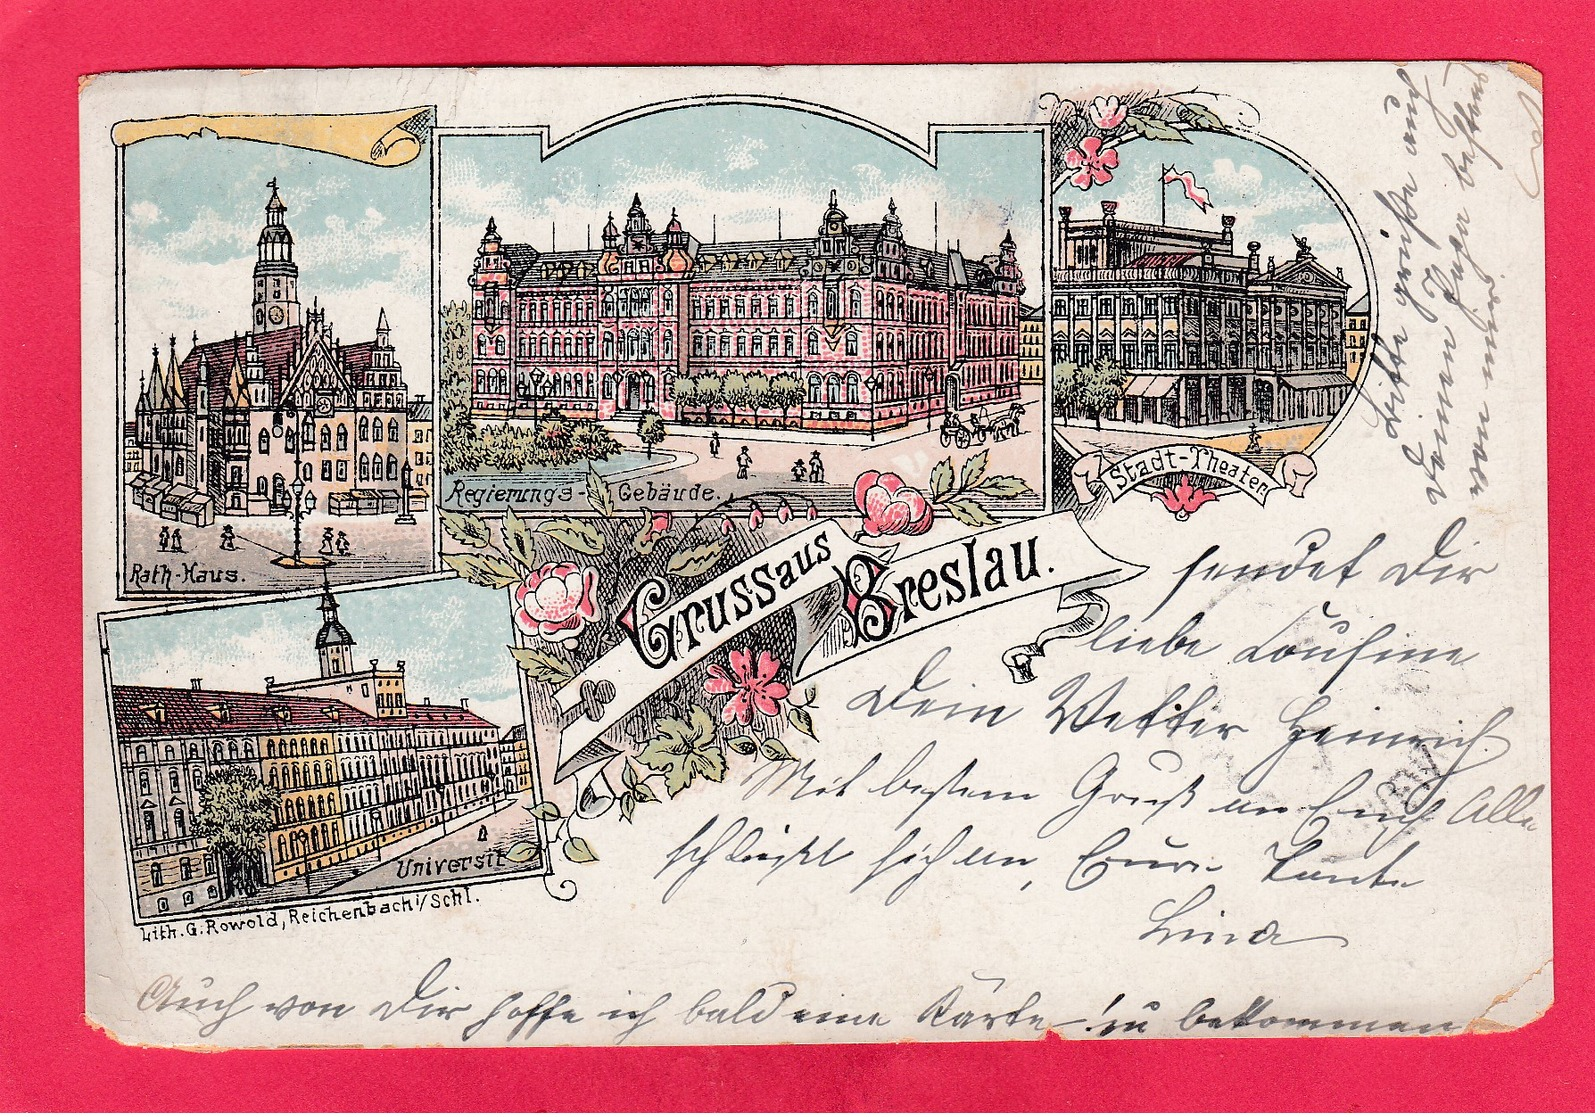 Rath-Haus.
Regierungs-Gebäude.
Stadt-Theater
Universit
Gruss aus Breslau.
Lith. G. Rowold, Reichenbach i/Schl.
sendet Dir
liebe Cousine
Dein Vetter Heinrich
Mit bestem Gruß an Euch Alle
schließt sich an, Eure Tante
Lina
Auch von Dir hoffe ich bald eine Karte zu bekommen
Bitte grüße auch
Deinen Papa bestens
von mir